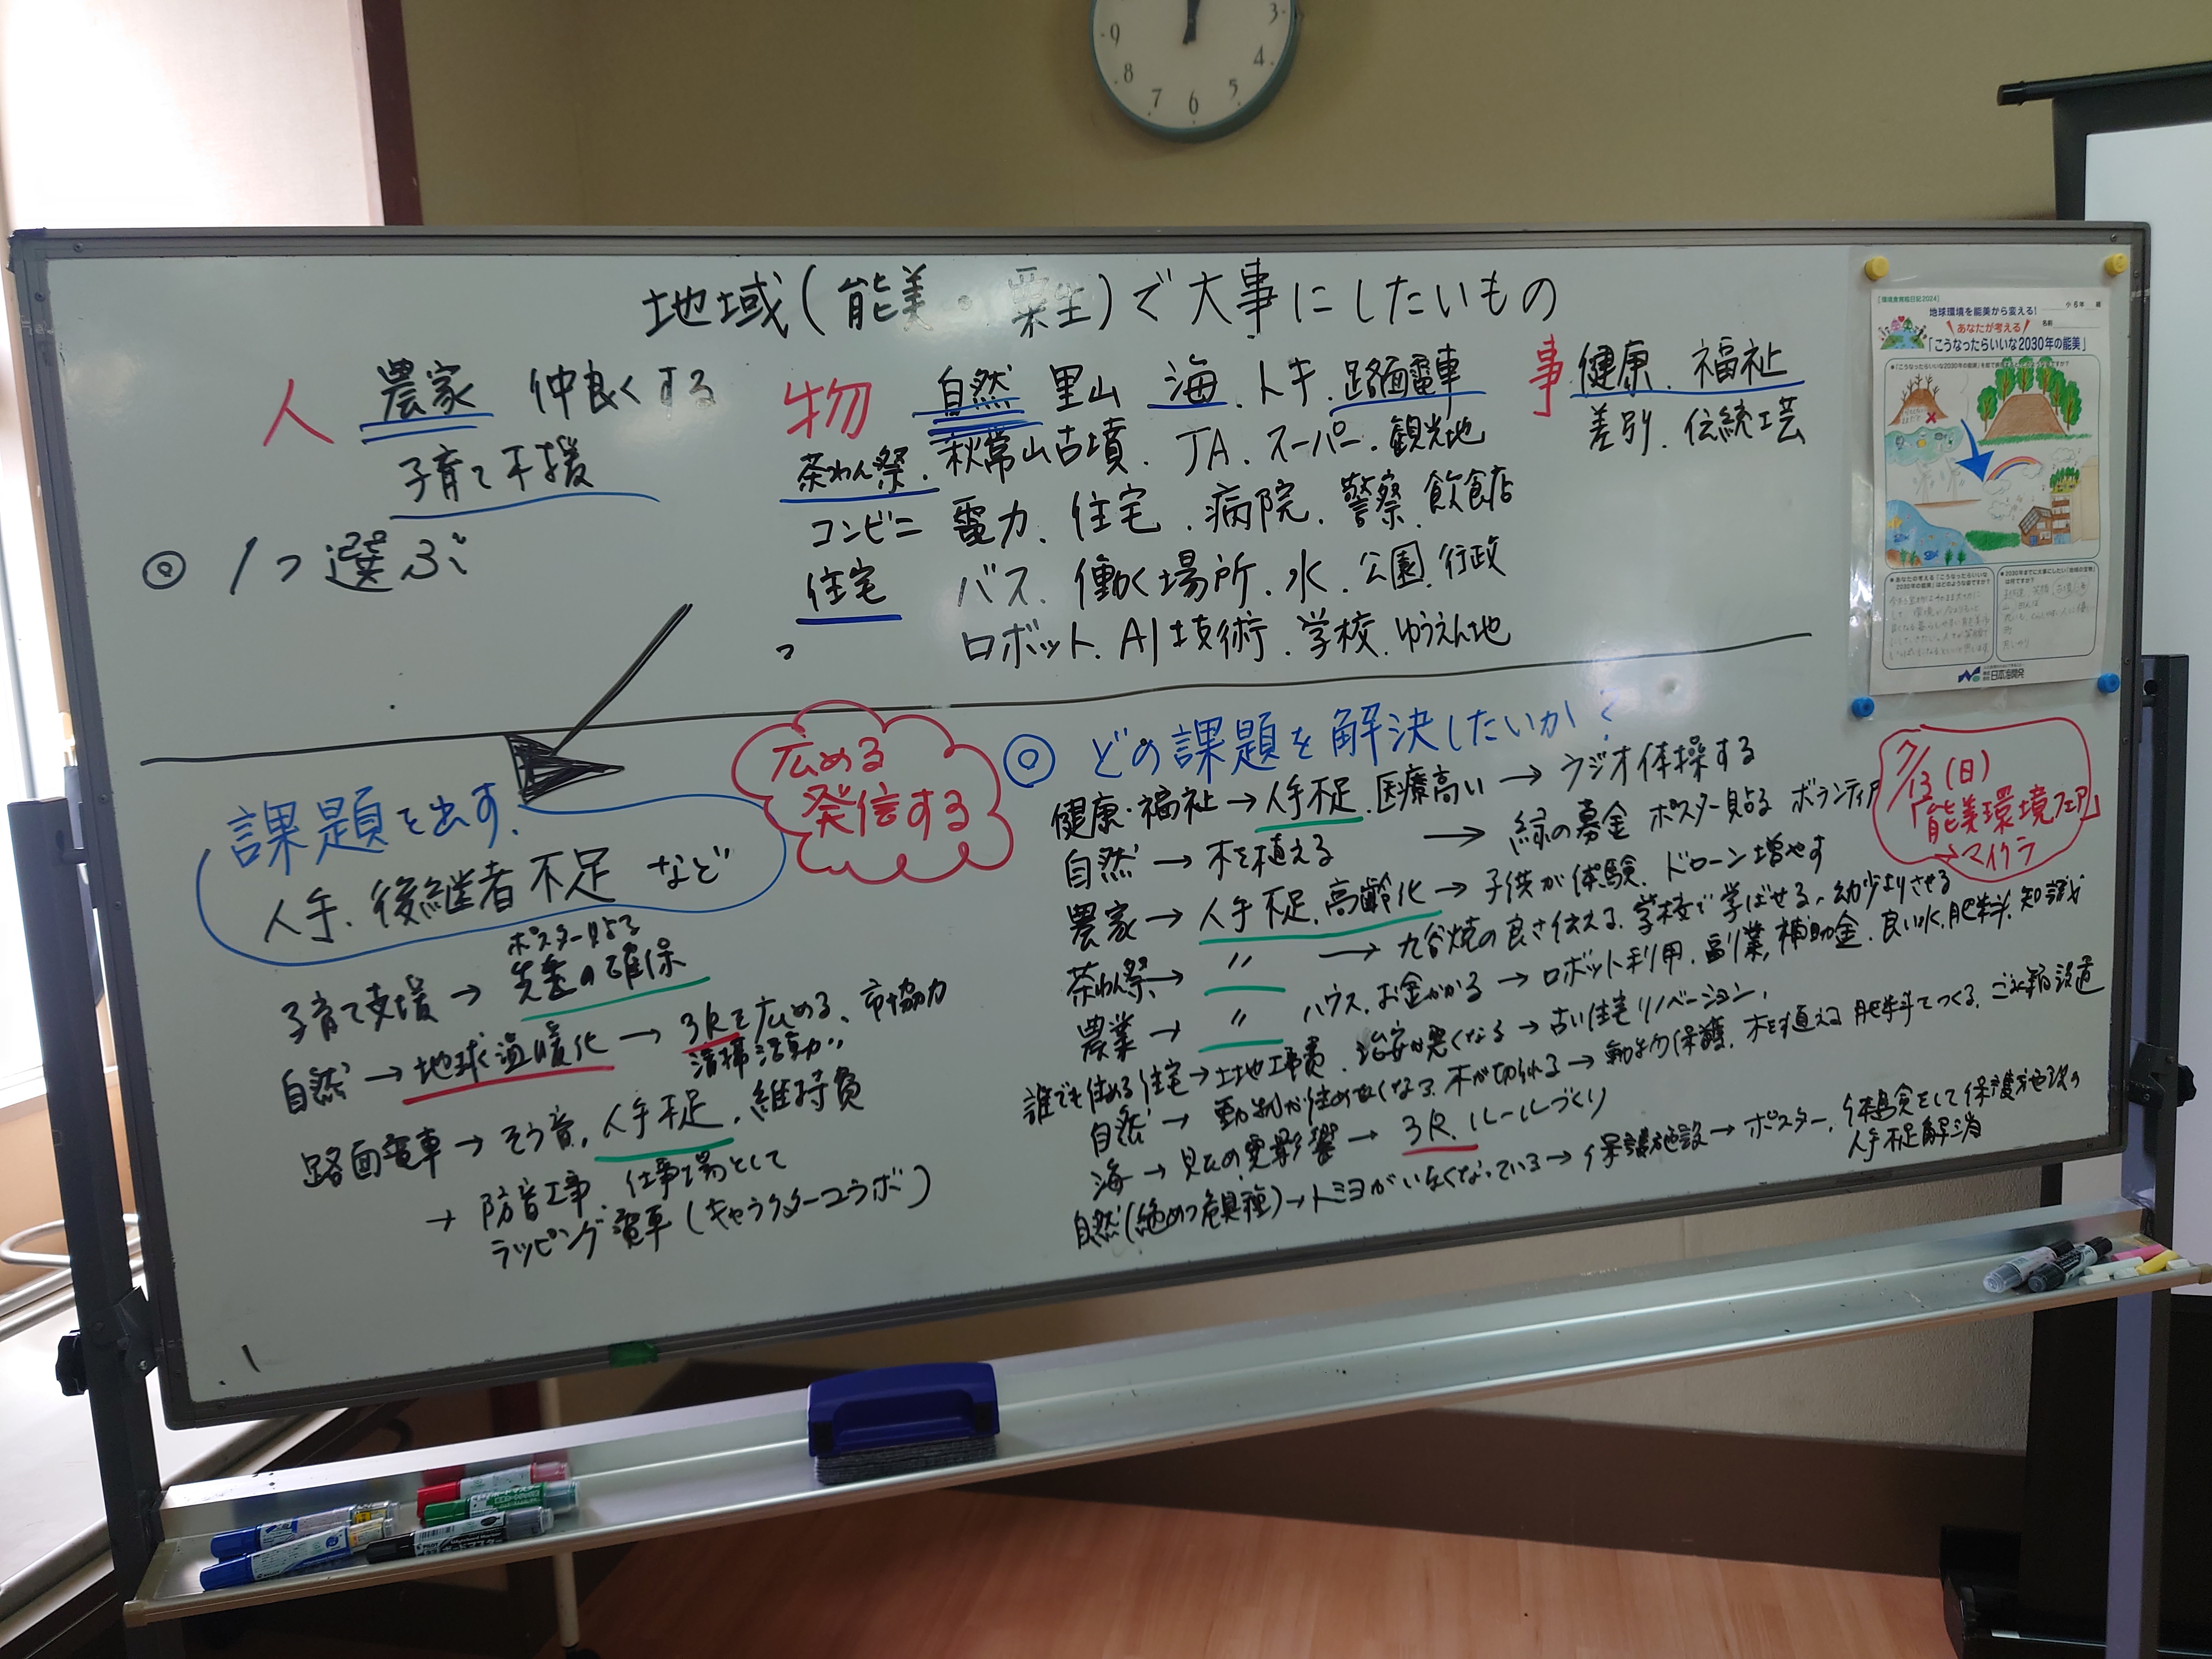 地域(能美・粟生)で大事にしたいもの
人 農家 仲良くする
子育て支援
◎ 1つ選ぶ
物 自然 里山 海.トキ.路面電車
茶わん祭.秋常山古墳.JA.スーパー.観光地
コンビニ 電力.住宅.病院.警察.飲食店
住宅 バス.働く場所.水.公園.行政
ロボット.AI技術.学校.ゆうえん地
事 健康.福祉
差別.伝統工芸
課題を出す.
人手、後継者不足 など
広める
発信する
ポスター貼る
子育て支援→ の確保
自然→地球温暖化→3Rを広める、市協力
清掃活動〃
路面電車→そう音,人手不足.維持費
→防音工事.仕事場として
ラッピング電車(キャラクターコラボ)
◎ どの課題を解決したいか?
健康・福祉→人手不足.医療高い→ラジオ体操する
自然→木を植える →緑の募金 ポスター貼る ボランティア
農家→人手不足.高齢化→子供が体験.ドローン増やす
茶わん祭→〃 →九谷焼の良さ伝える.学校で学ばせる.幼少よりさせる
農業→〃 ハウス.お金がかかる→ロボット利用.副業,補助金.良い水,肥料.知識
誰でも住める住宅→土地工事費.治安が悪くなる→古い住宅リノベーション,
自然→動物が住めなくなる.木が切られる→動物保護.木を植える 肥料でつくる.ごみ箱設置
海→ の悪影響→3R.ルールづくり
自然(絶めつ危具種)→トミヨがいなくなっている→保護施設→ポスター,体験をして保護地域の
人手不足解消
7/13(日)
「能美環境フェア」
→マイクラ
小6年 組
地球環境を能美から変える!
名前
あなたが考える
「こうなったらいいな2030年の能美」
日本海開発
9 8 7 6 5 4 3